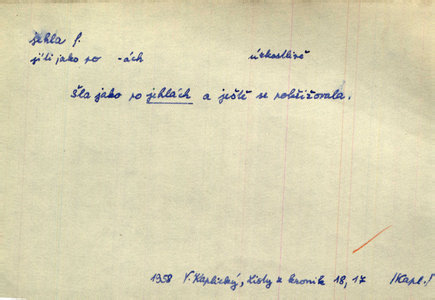 jehla f.
jíti jako po -ách úzkostlivě
Šla jako po jehlách a ještě se
1958 V. Kaplický, Listy z kronik 18, 17 /Kapl./